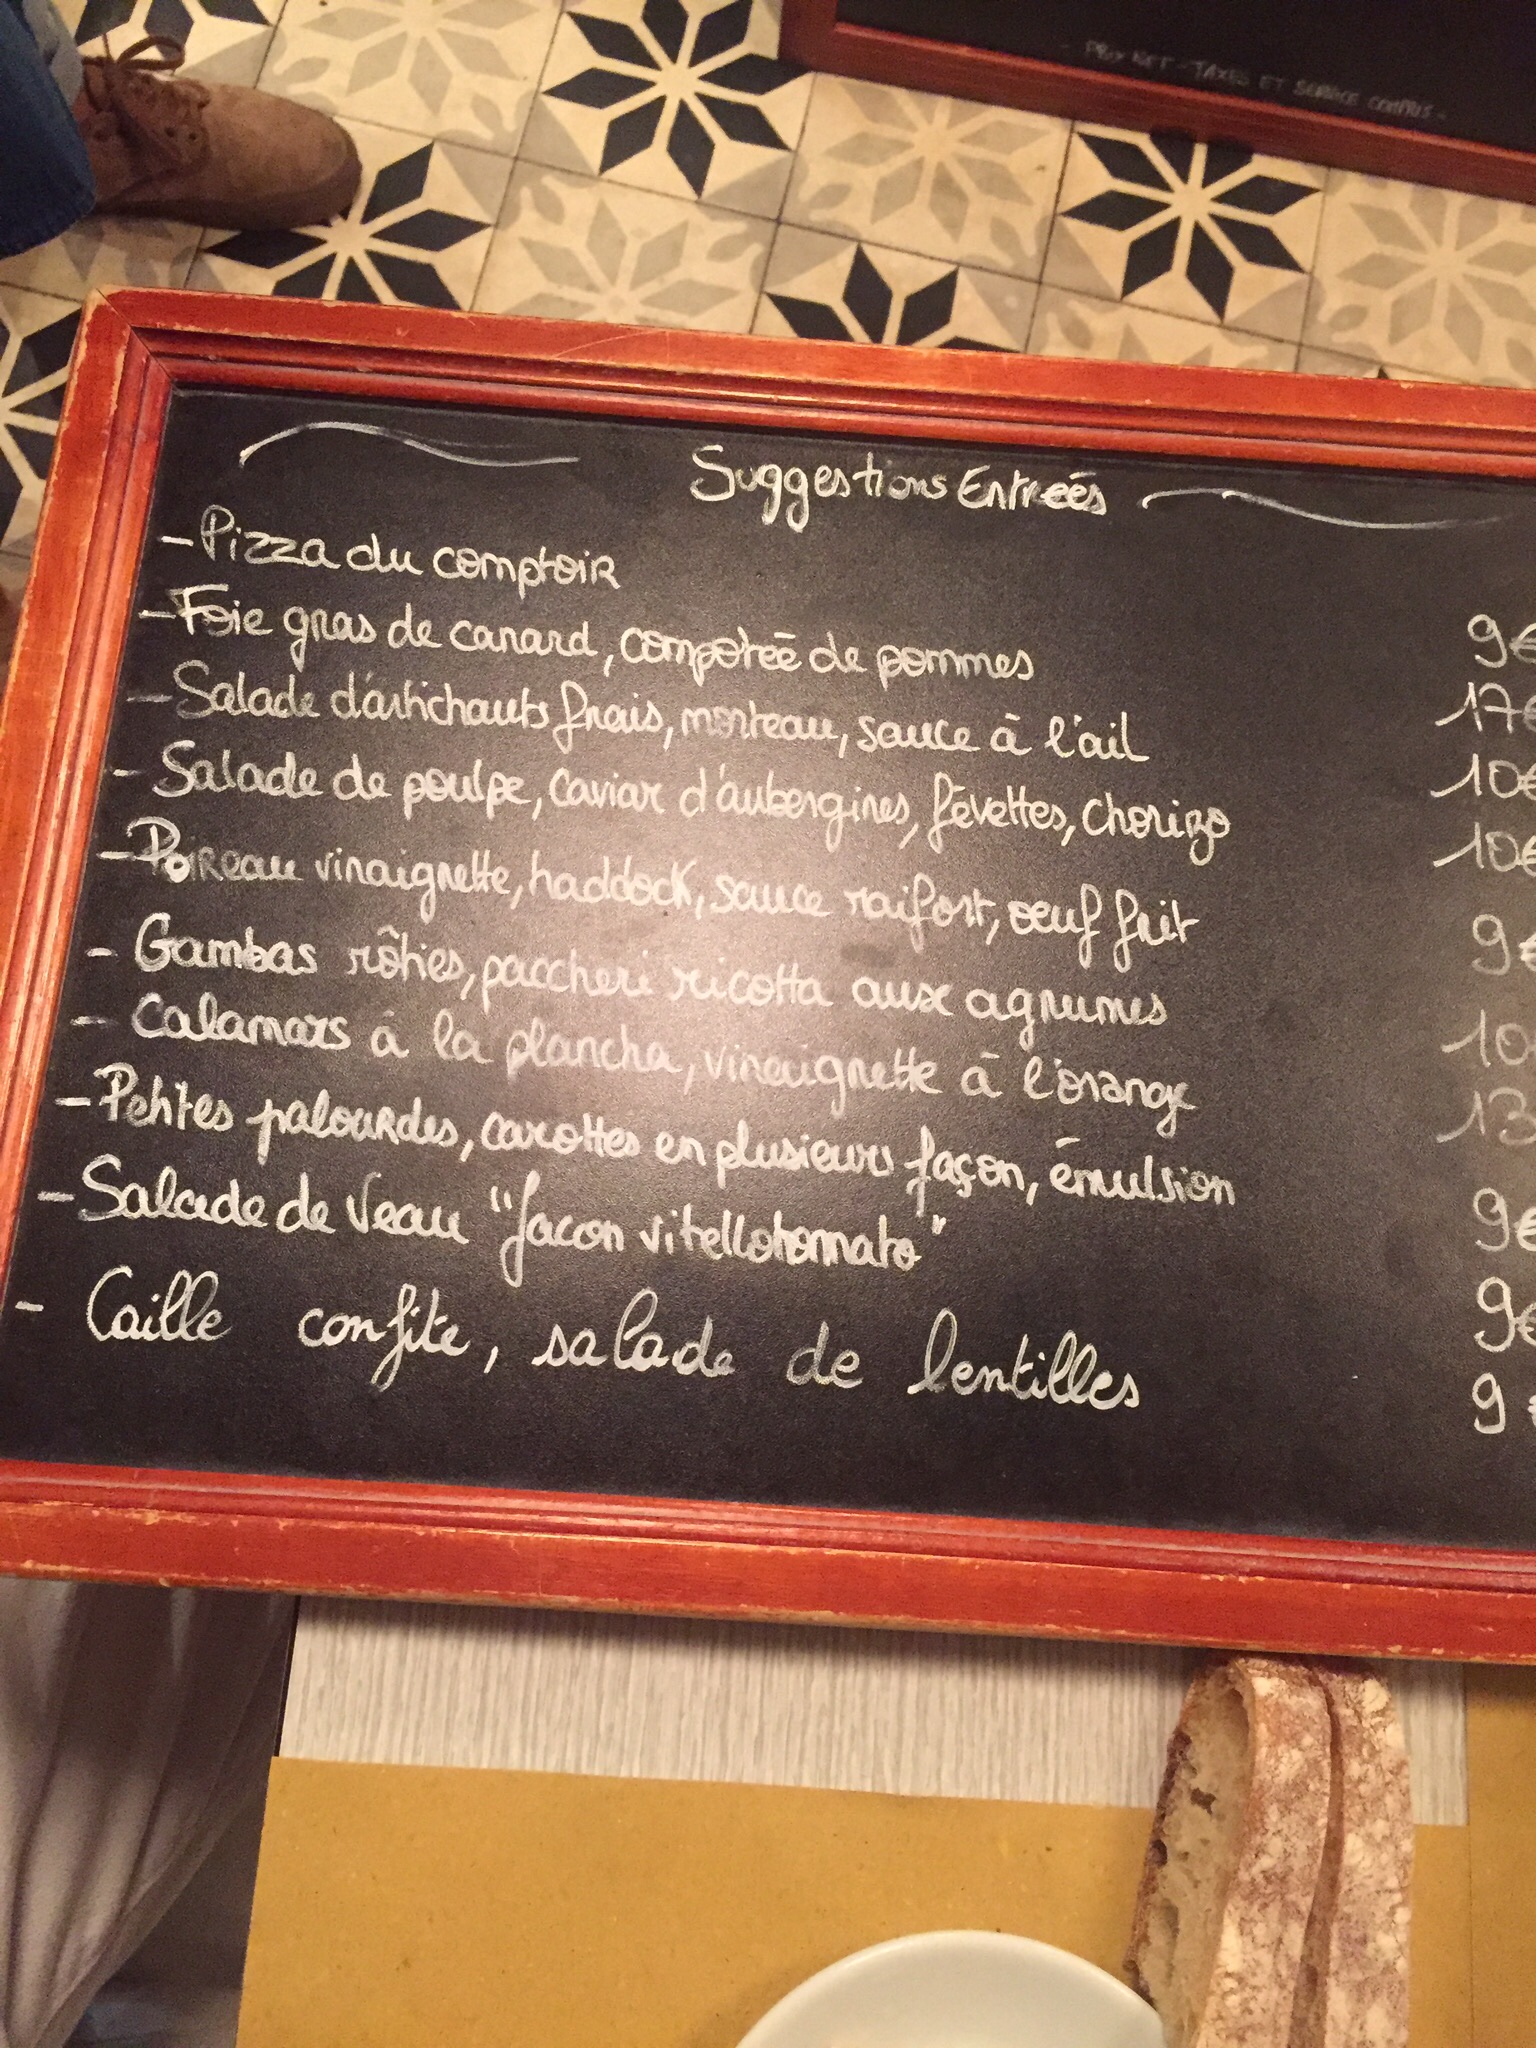 - PRIX NET - TAXES ET SERVICE COMPRIS -
Suggestions Entreés
- Pizza du comptoir 9€
- Foie gras de canard, compotéé de pommes 17€
- Salade d'artichauts frais, morteau, sauce à l'ail 10€
- Salade de poulpe, caviar d'aubergines, févettes, chorizo 10€
- Poireau vinaigrette, haddock, sauce raifort, oeuf frit 9€
- Gambas rôties, paccheri ricotta aux agrumes 10
- Calamars à la plancha, vinaigrette à l'orange 13
- Petites palourdes, carottes en plusieurs façon, émulsion 9€
- Salade de veau "facon vitellotonnato" 9€
- Caille confite, salade de lentilles 9€